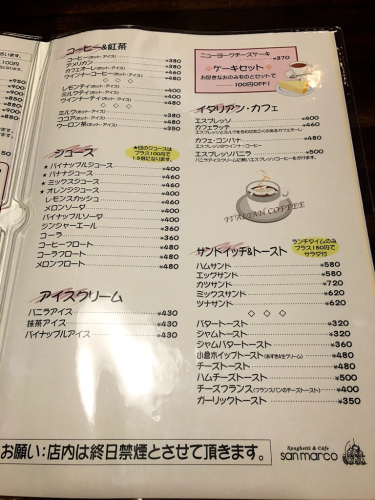 コーヒー&紅茶
コーヒー(ホット・アイス) ¥380
アメリカン ¥380
カフェオーレ(ホット・アイス) ¥460
ウインナーコーヒー(ホット・アイス) ¥460
レモンティ(ホット・アイス) ¥400
ミルクティ(ホット・アイス) ¥400
ウインナーティ(ホット・アイス) ¥460
ミルク(ホット・アイス)
ココア(ホット・アイス)
ウーロン茶(ホット・アイス)
ジュース
★印のジュースは
プラス100円で
1.5倍になります。
★ パイナップルジュース ¥400
★ バナナジュース ¥460
★ ミックスジュース ¥460
★ オレンジジュース ¥400
レモンスカッシュ ¥460
メロンソーダ ¥400
パイナップルソーダ ¥400
ジンジャーエール ¥380
コーラ ¥380
コーヒーフロート ¥480
コーラフロート ¥480
メロンフロート ¥480
アイスクリーム
バニラアイス ¥430
抹茶アイス ¥430
パイナップルアイス ¥430
ニューヨークチーズケーキ ¥370
ケーキセット
お好きなおのみものとセットで
100円OFF!
イタリアン・カフェ
エスプレッソ ¥400
カフェラッテ ¥460
エスプレッソとミルクを合わせたきめこまかであるカフェオーレ
カフェ・コンパナ ¥480
エスプレッソのウインナーコーヒー
エスプレッソバニラ ¥500
バニラアイスクリームに熱いエスプレッソコーヒーをかけます。
ITALYAN COFFEE
サンドイッチ&トースト
ランチタイムのみ
プラス150円で
サラダ付
ハムサンド ¥580
エッグサンド ¥580
カツサンド ¥720
ミックスサンド ¥620
ツナサンド ¥620
バタートースト ¥320
ジャムトースト ¥320
ジャムバタートースト ¥360
小倉ホイップトースト(あずき&生クリーム) ¥480
チーズトースト ¥480
ハムチーズトースト ¥500
チーズフランス(フランスパンのチーズトースト) ¥400
ガーリックトースト ¥350
お願い:店内は終日禁煙とさせて頂きます。
Spaghetti & Cafe
san marco